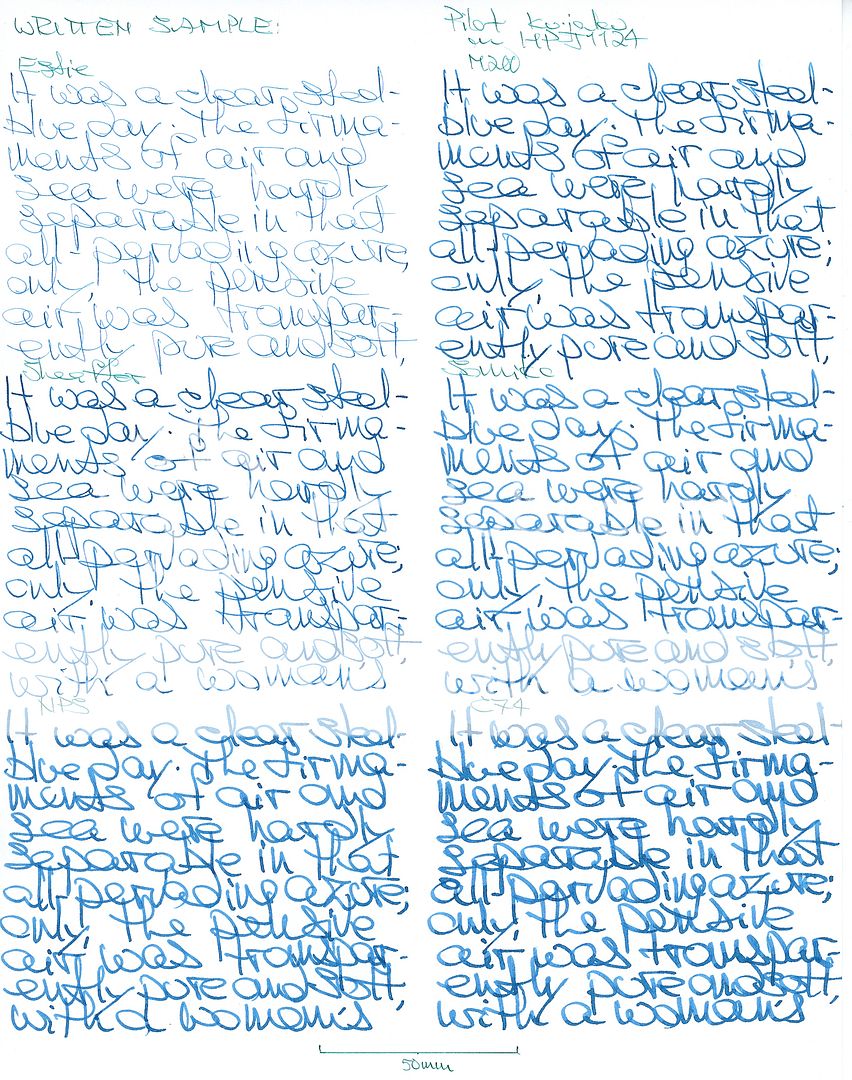 WRITTEN SAMPLE:
Pilot Kujaku
in HPJ1124
Estie
It was a clear, steel-
blue day. The firma-
ments of air and
sea were hardly
separable in that
all-pervading azure;
only, the pensive
air was transpar-
ently pure and soft,
M200
It was a clear, steel-
blue day. The firma-
ments of air and
sea were hardly
separable in that
all-pervading azure;
only, the pensive
air was transpar-
ently pure and soft,
Sheaffer
It was a clear, steel-
blue day. The firma-
ments of air and
sea were hardly
separable in that
all-pervading azure;
only, the pensive
air was transpar-
ently pure and soft,
with a woman's
It was a clear, steel-
blue day. The firma-
ments of air and
sea were hardly
separable in that
all-pervading azure;
only, the pensive
air was transpar-
ently pure and soft,
with a woman's
NPS
It was a clear, steel-
blue day. The firma-
ments of air and
sea were hardly
separable in that
all-pervading azure;
only, the pensive
air, was transpar-
ently pure and soft,
with a woman's
C74
It was a clear, steel-
blue day. The firma-
ments of air and
sea were hardly
separable in that
all-pervading azure;
only, the pensive
air, was transpar-
ently pure and soft,
with a woman's
50mm